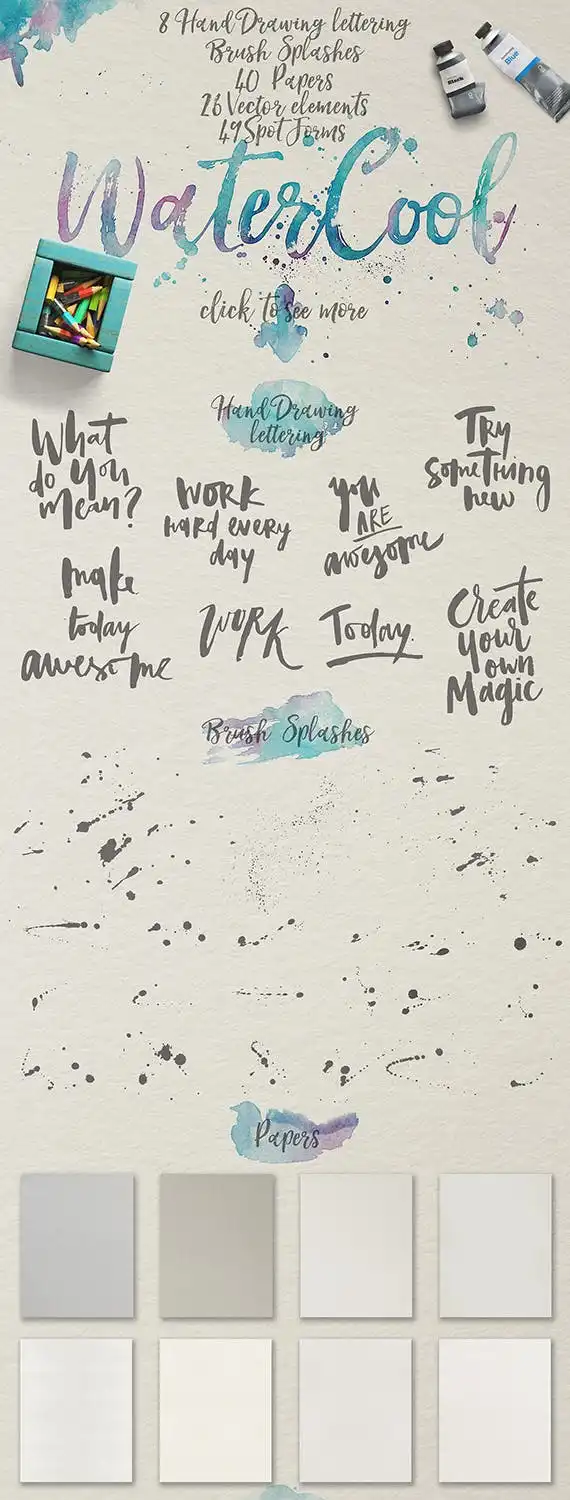 8 Hand Drawing lettering
Brush Splashes
40 Papers
26 Vector elements
49 Spot Forms
Black
Blue
WaterCool
click to see more
Hand Drawing
lettering
What
do you
mean?
Work
hard every
day
you
ARE
awesome
Try
something
new
make
today
awesome
Work
Today.
Create
your
own
Magic
Brush Splashes
Papers